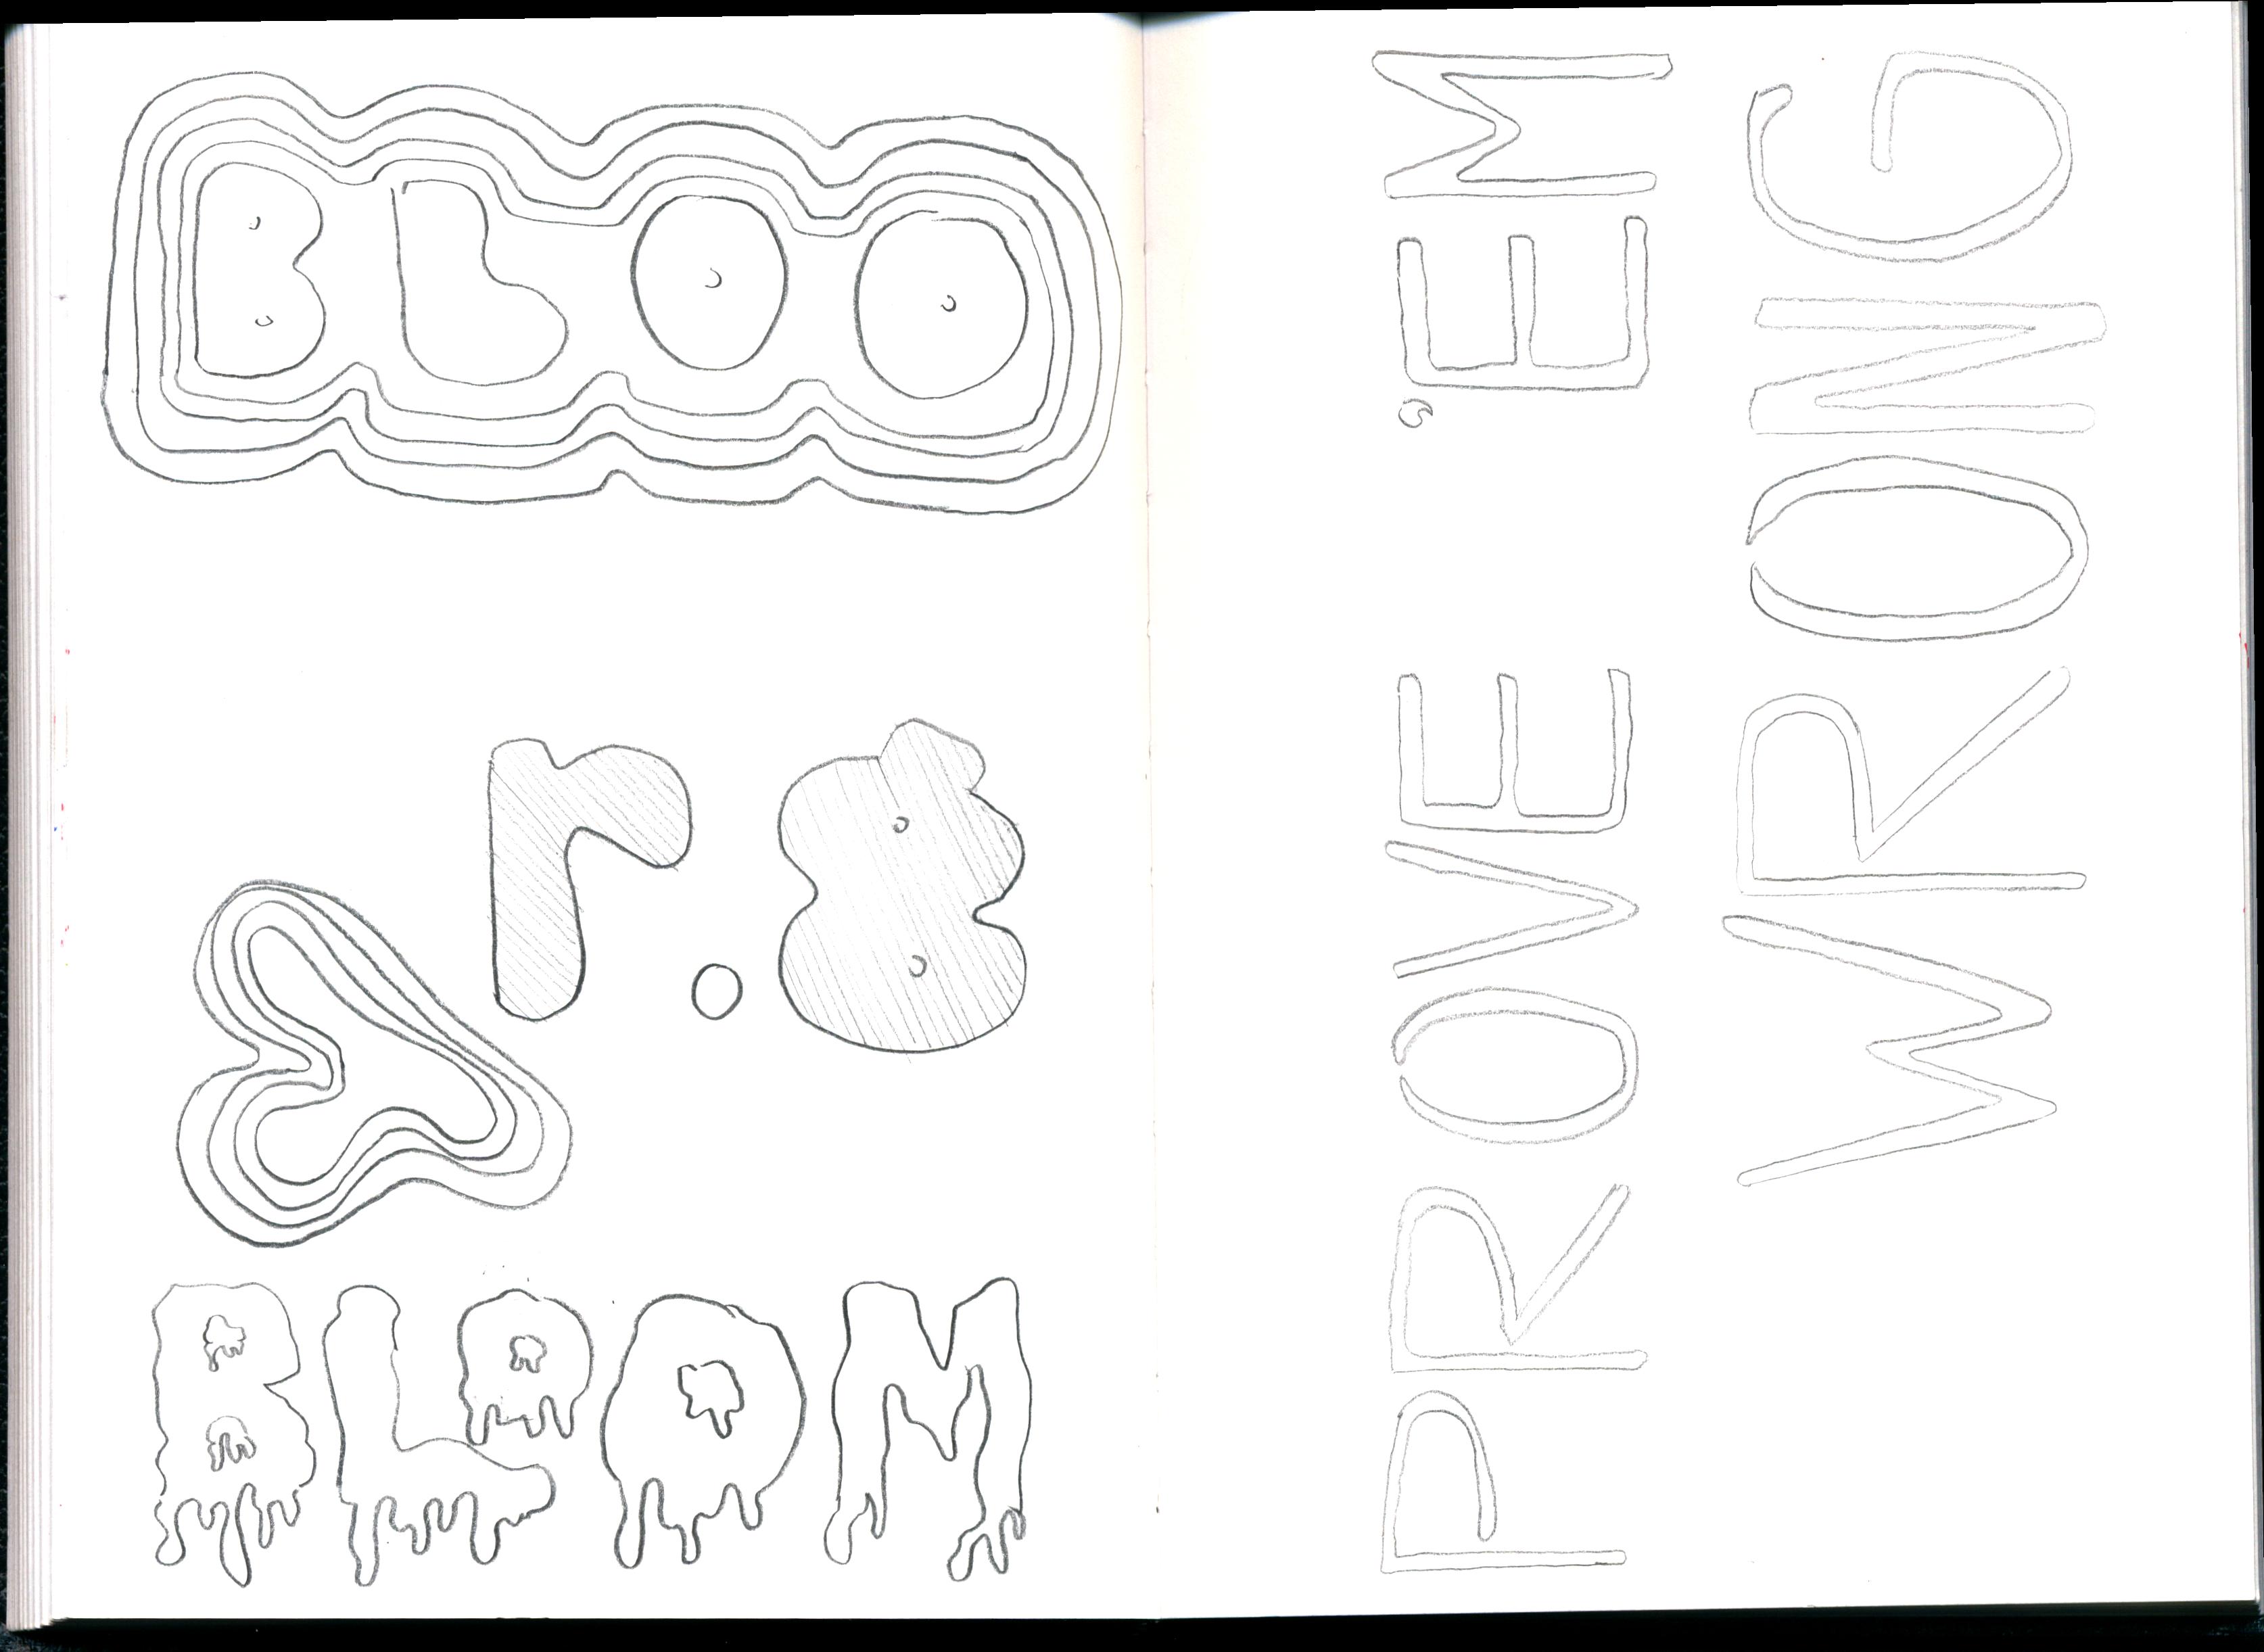 BLOO
r.
BLOOM
PROVE 'EM
WRONG